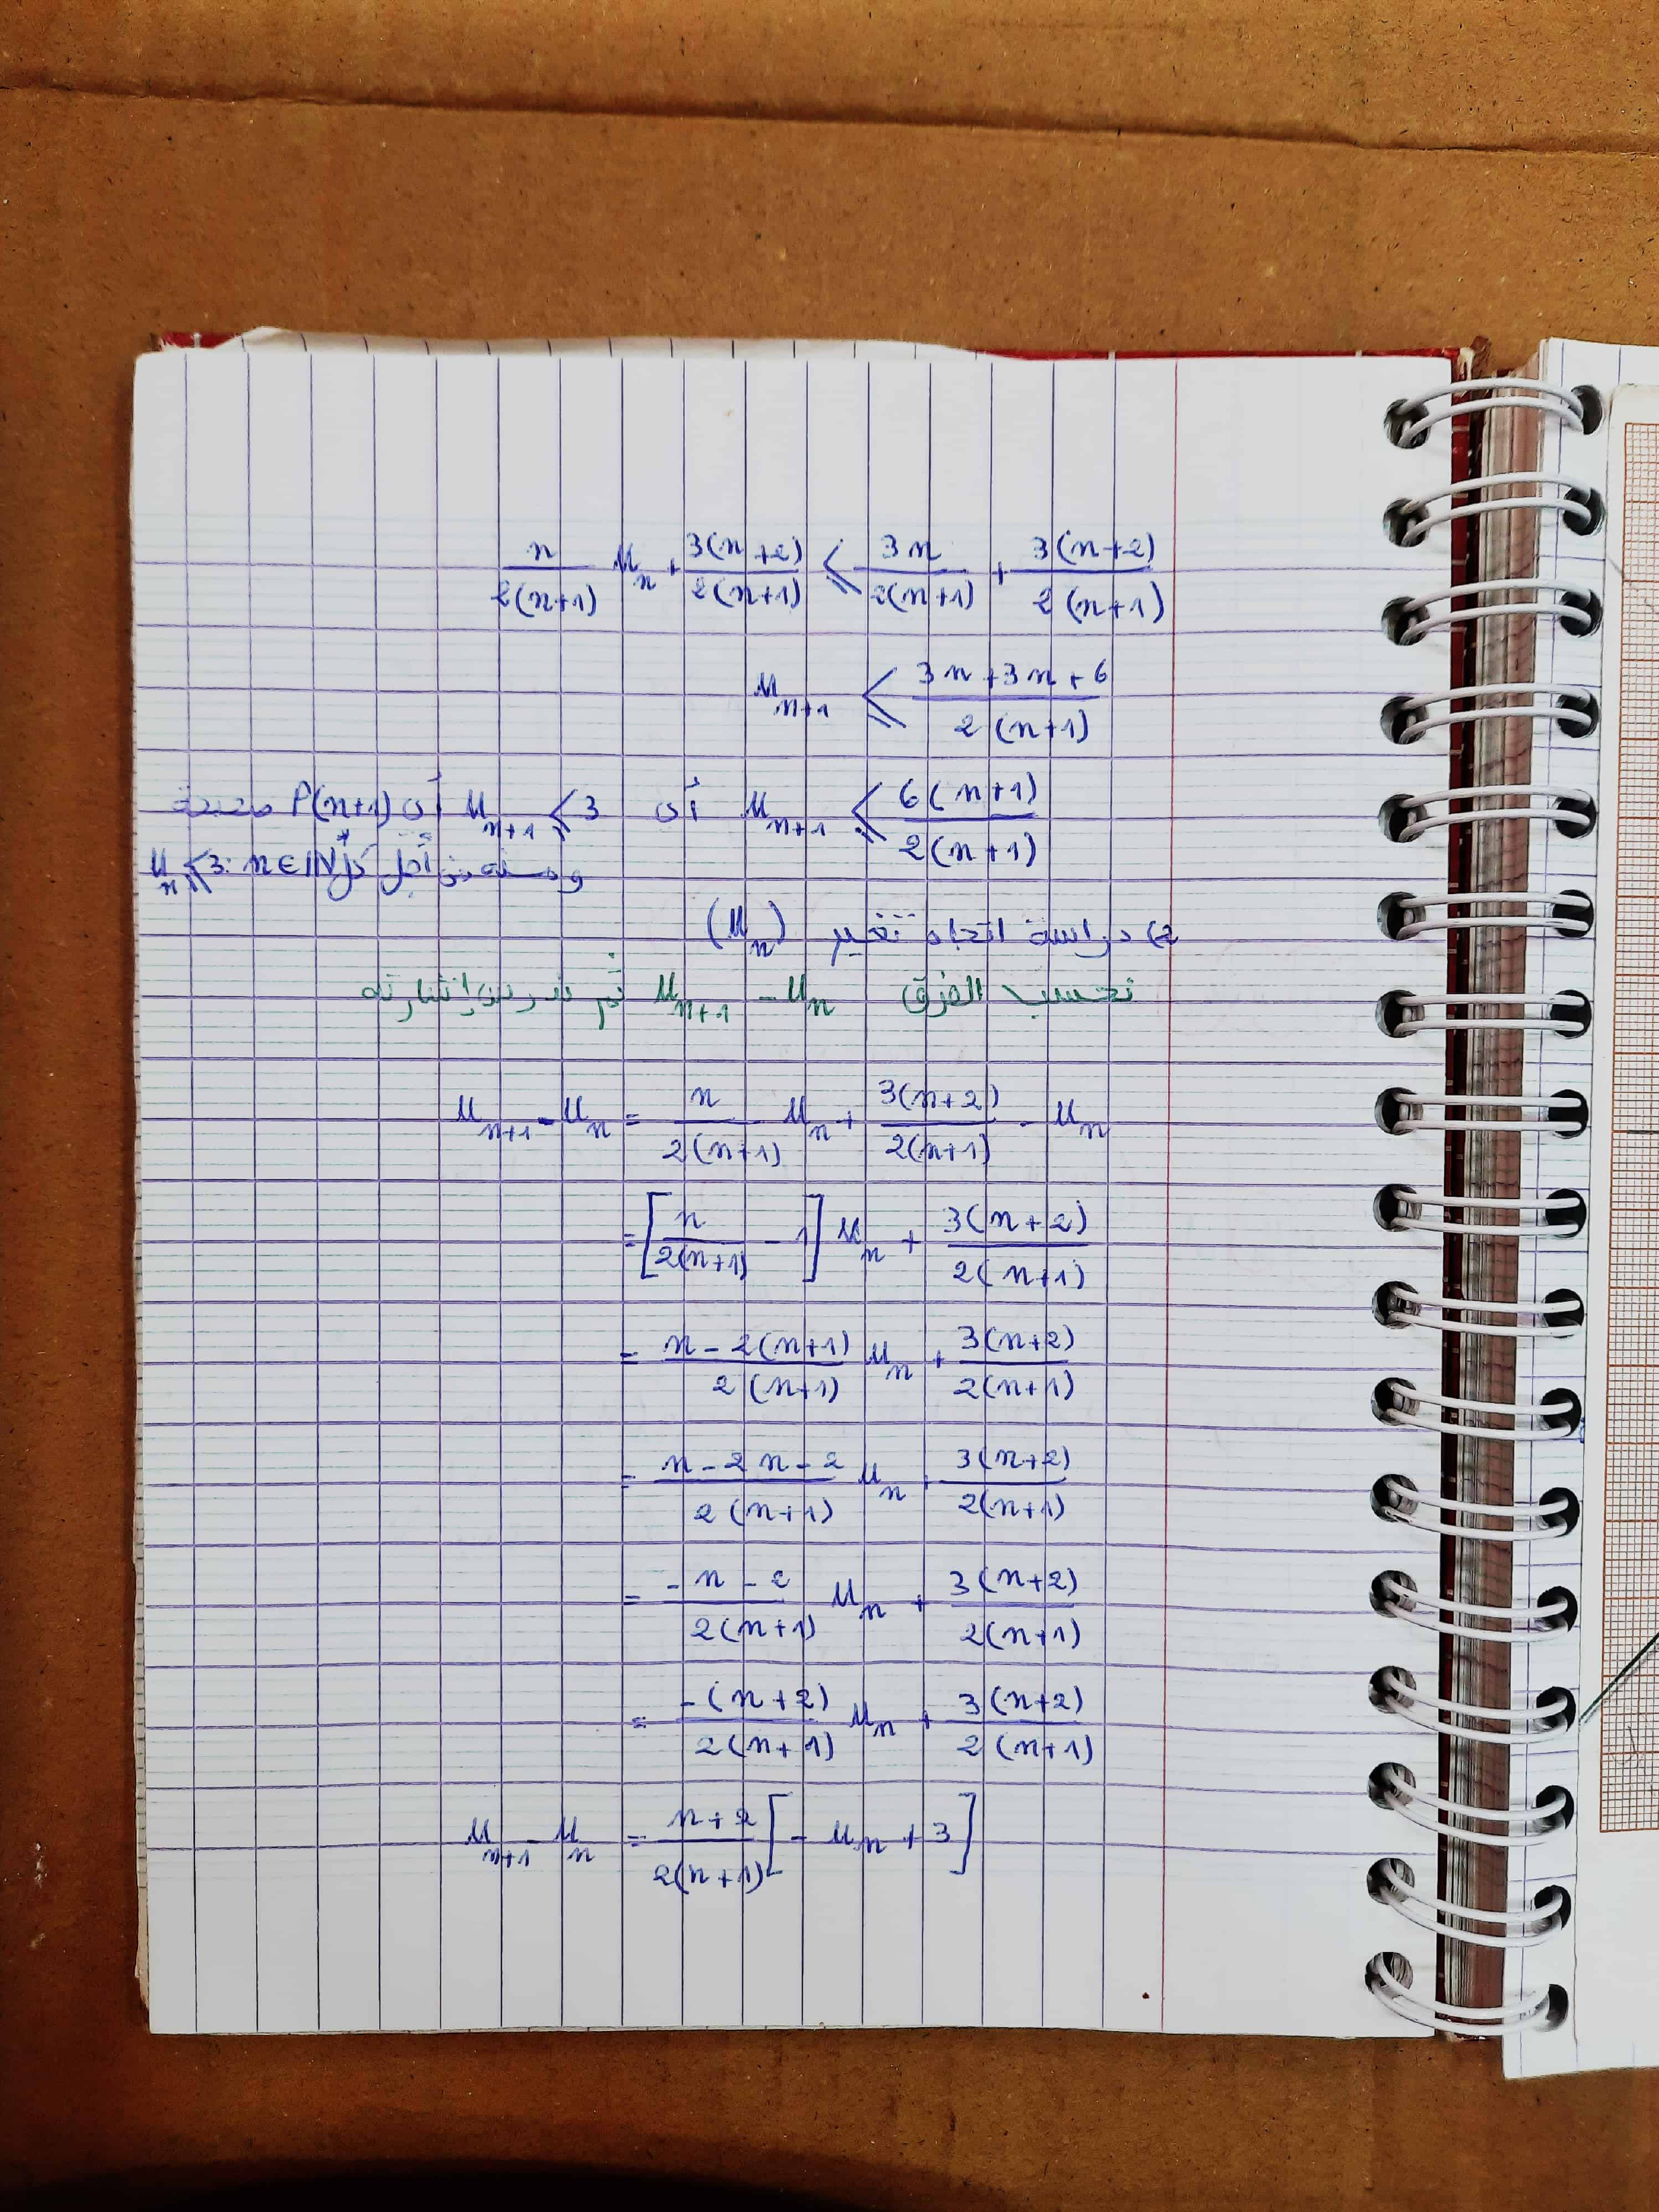 n/2(n+1) u_n + 3(n+2)/2(n+1) ⩽ 3n/2(n+1) + 3(n+2)/2(n+1)
u_{n+1} ⩽ 3n+3n+6/2(n+1)
u_{n+1} ⩽ 6(n+1)/2(n+1) أي u_{n+1} ⩽ 3 أي P(n+1) صحيحة
ومنه من أجل كل n∈ℕ* : u_n ⩽ 3
2) دراسة اتجاه تغير (u_n)
نحسب الفرق u_{n+1} - u_n ثم ندرس إشارته
u_{n+1} - u_n = n/2(n+1) u_n + 3(n+2)/2(n+1) - u_n
= [n/2(n+1) - 1] u_n + 3(n+2)/2(n+1)
= n-2(n+1)/2(n+1) u_n + 3(n+2)/2(n+1)
= n-2n-2/2(n+1) u_n + 3(n+2)/2(n+1)
= -n-2/2(n+1) u_n + 3(n+2)/2(n+1)
= -(n+2)/2(n+1) u_n + 3(n+2)/2(n+1)
u_{n+1} - u_n = n+2/2(n+1) [- u_n + 3]